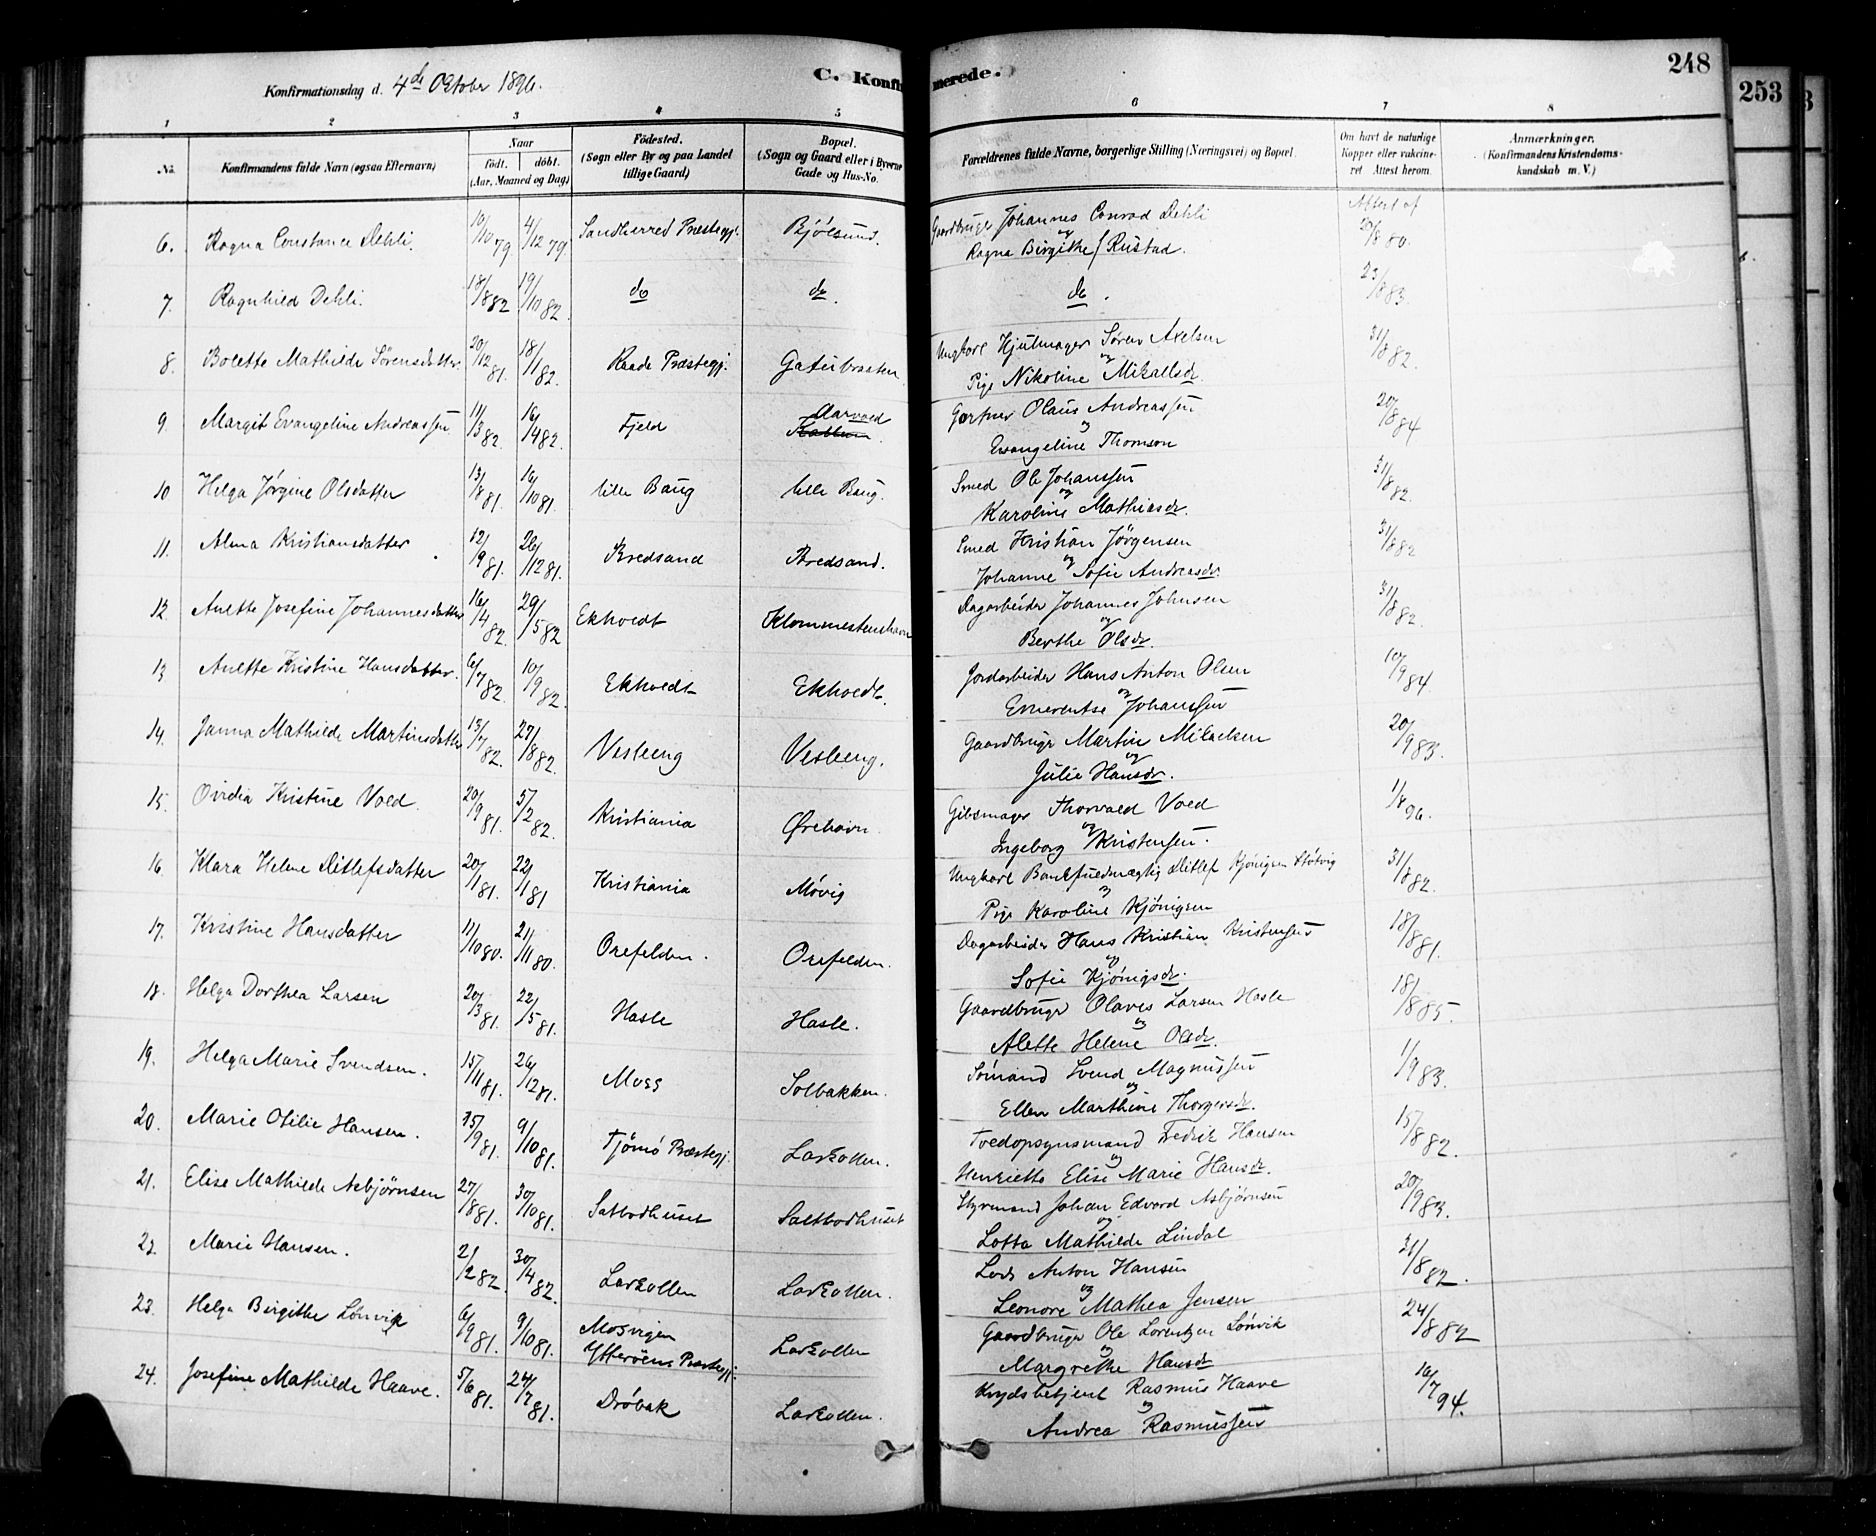 Konfirmationsdag d. 4de Oktober 1896.
C. Konfirmerede.
248
253
1 2 3 4 5 6 7 8
No.
Konfirmandens fulde Navn (ogsaa Efternavn)
Naar
födt. döbt.
(Aar, Maaned og Dag)
Födested.
(Sogn eller By og paa Landet tillige Gaard)
Bopæl.
(Sogn og Gaard eller i Byerne Gade og Hus-No.
Forældrenes fulde Navne, borgerlige Stilling (Næringsvei) og Bopæl.
Om havt de naturlige Kopper eller vakcineret. Attest herom.
Anmærkninger.
(Konfirmandens Kristendomskundskab m. V.)
6. Ragna Constance Dehli. 10/10 79 4/12 79. Sandherred Præstegj. Bjölsund. Gaardbruger Johannes Conrad Dehli Attest af 20/8 80.
og
Ragna Birgithe f. Rustad.
7. Ragnhild Dehli. 18/8 82 19/10 82. do do. do. 23/8 83.
8. Bolette Mathilde Sörensdatter 20/12 81. 18/1 82. Raade Præstegj. Gatubraaten Ungkarl Hjulmager Sören Axelsen 31/8 82.
og
Pige Nikoline Mikalsdr.
9. Margit Evangeline Andreassen 11/3 82. 16/4 82. Fjeld Aarvold Gartner Olaus Andreassen 20/8 84
og
Evangeline Thomson
10 Helga Jörgine Olsdatter 13/8 81. 16/10 81. lille Baug lille Baug. Smed Ole Johanssen 31/8 82.
og
Karoline Mathiasdr.
11. Alma Kristiansdatter 12/9 81. 26/12 81. Bredsand Bredsand. Smed Kristian Jörgensen 31/8 82
og
Johanne Sofie Andreasdr.
12. Anette Josefine Johannesdatter 16/4 82. 29/5 82 Ekholdt Klommestenshavn Dagarbeider Johannes Johnsen 31/8 82.
og
Berthe Olsdr.
13 Anette Kristine Hansdatter. 6/7 82. 10/9 82. Ekholdt Ekholdt. Jordarbeider Hans Anton Olsen 10/9 84.
og
Emerentse Johanssen
14. Janna Mathilde Martinsdatter 13/7 82. 27/8 82. Vesleeng Vesleeng. Gaardbruger Martin Mikaelsen 20/9 83.
og
Julie Hansdr.
15. Ovidia Kristine Vold. 20/9 81. 5/2 82. Kristiania Örehavn Gibsmager Thorvald Vold 1/8 96.
og
Ingeborg Kristensen.
16. Klara Helene Ditlefsdatter 20/1 81. 22/1 81 Kristiania Mövig Ungkarl Bankfuldmægtig Ditlef Kjönigsen Stötvig 31/8 82.
og
Pige Karoline Kjönigsen
17. Kristine Hansdatter 11/10 80. 21/11 80. Orefelden. Orefelden. Dagarbeider Hans Kristian Kristensen 18/8 81.
og
Sofie Kjönigsdr.
18. Helga Dorthea Larsen 20/3 81. 22/5 81. Hasle Hasle. Gaardbruger Olaves Larsen Hasle 18/8 85.
og
Alette Helene Olsdr.
19. Helga Marie Svendsen. 15/11 81. 26/12 81. Moss Solbakken. Sömand Svend Magnussen 1/9 83.
og
Ellen Marthine Thorgersdr.
20. Marie Otilie Hansen. 15/9 81. 9/10 81. Tjömö Præstegj. Larkollen. Toldopsynsmand Fredrik Hansen 15/8 82.
og
Henriette Elise Marie Hansdr.
21. Elise Mathilde Asbjörnsen 27/8 81. 30/10 81. Saltbodhuset Saltbodhuset Styrmand Johan Edvard Asbjörnsen 20/9 83.
og
Lotta Mathilde Lindal
22. Marie Hansen. 2/2 82. 30/4 82. Larkollen Larkollen. Lods Anton Hansen 31/8 82.
og
Leonore Mathea Jensen
23. Helga Birgithe Lönvik 6/9 81. 9/10 81. Mosvigen Ytteröens Præstegj. Larkollen Gaardbruger Ole Lorentzen Lönvik 24/8 82
og
Margrethe Hansdr
24. Josefine Mathilde Haave. 5/6 81. 24/7 81. Dröbak Larkollen. Krydsbetjent Rasmus Haave 16/7 94.
og
Andrea Rasmussen